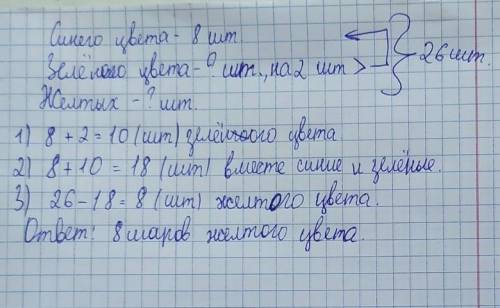 Синего цвета - 8 шт.
Зелёного цвета - ? шт., на 2 шт >
26 шт.
Жёлтых - ? шт.
1) 8 + 2 = 10 (шт) зелёного цвета
2) 8 + 10 = 18 (шт) вместе синие и зелёные.
3) 26 - 18 = 8 (шт) желтого цвета.
Ответ: 8 шаров желтого цвета.